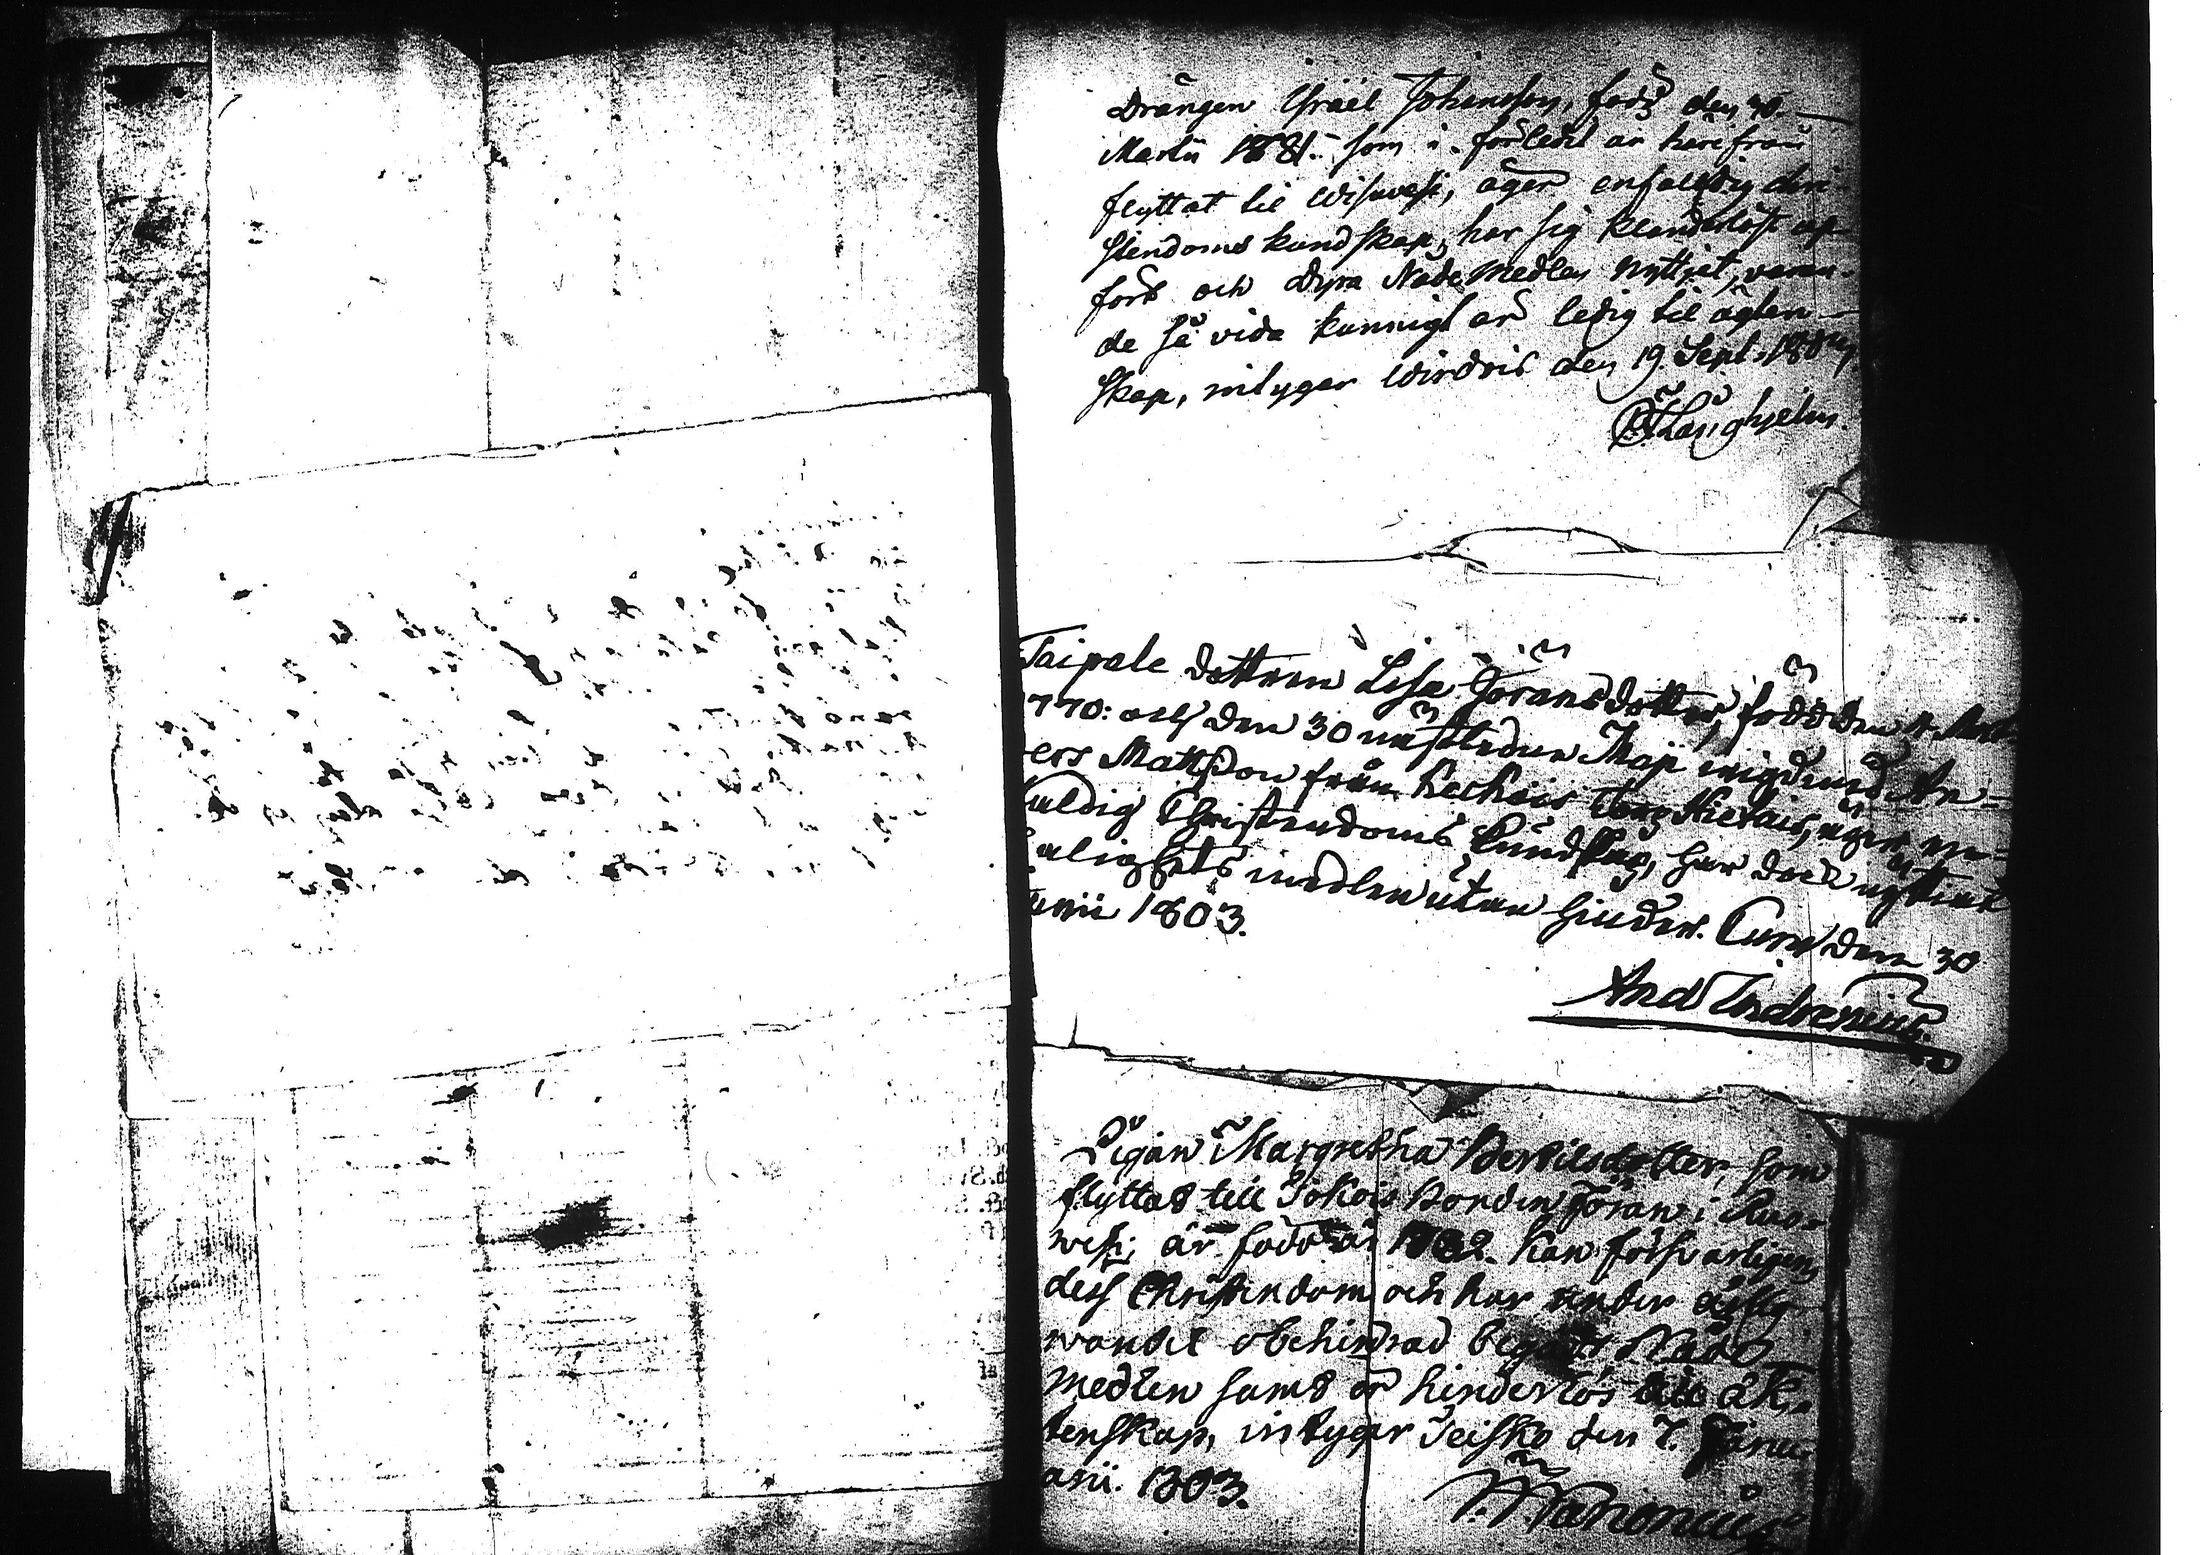 Drängen Israël Johansson, född den 30.
Martii 1781. som i förledit år härifrån
flyttat til Wisuvesi, äger enfaldig chri-
stendoms kundskap, har sig klanderlöst up-
fört och dyra Nådemedlen nyttjat, varan-
de så vida kunnigt är ledig til ägten-
skap, intygar Wirdois den 19. Sept.
Taipale dottren Lisa Göransdotter, född den
770: och den 30 nästledne Maji wigd med An-
ers Mattsson från äger en-
faldig Christendoms Kundskap, har den nyttiat
alighets medlen utan hinder. Curu den 30
unii 1803.
And Indrenius.
Pigan Margretha Bertilsdotter, som
flyttat till Jokois Bonden Jöran i Ruo-
wesi, är född år Kan försvarligen
dess Christendom och har under
wandel obehindrad begått Nåde-
medlen samt är hinderlös till äk-
tenskap, intygar Teisko den 7. Janu-
arii. 1803.